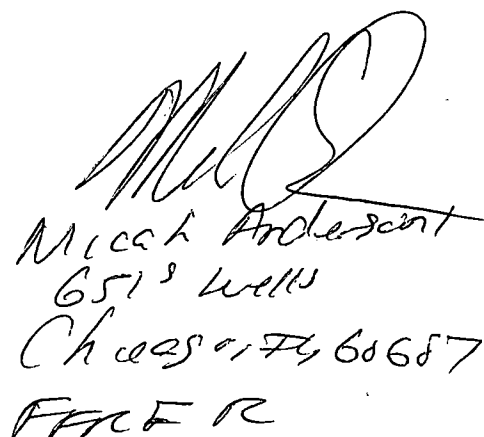 Micah Anderson
651 S Wells
Chicago, IL, 60607